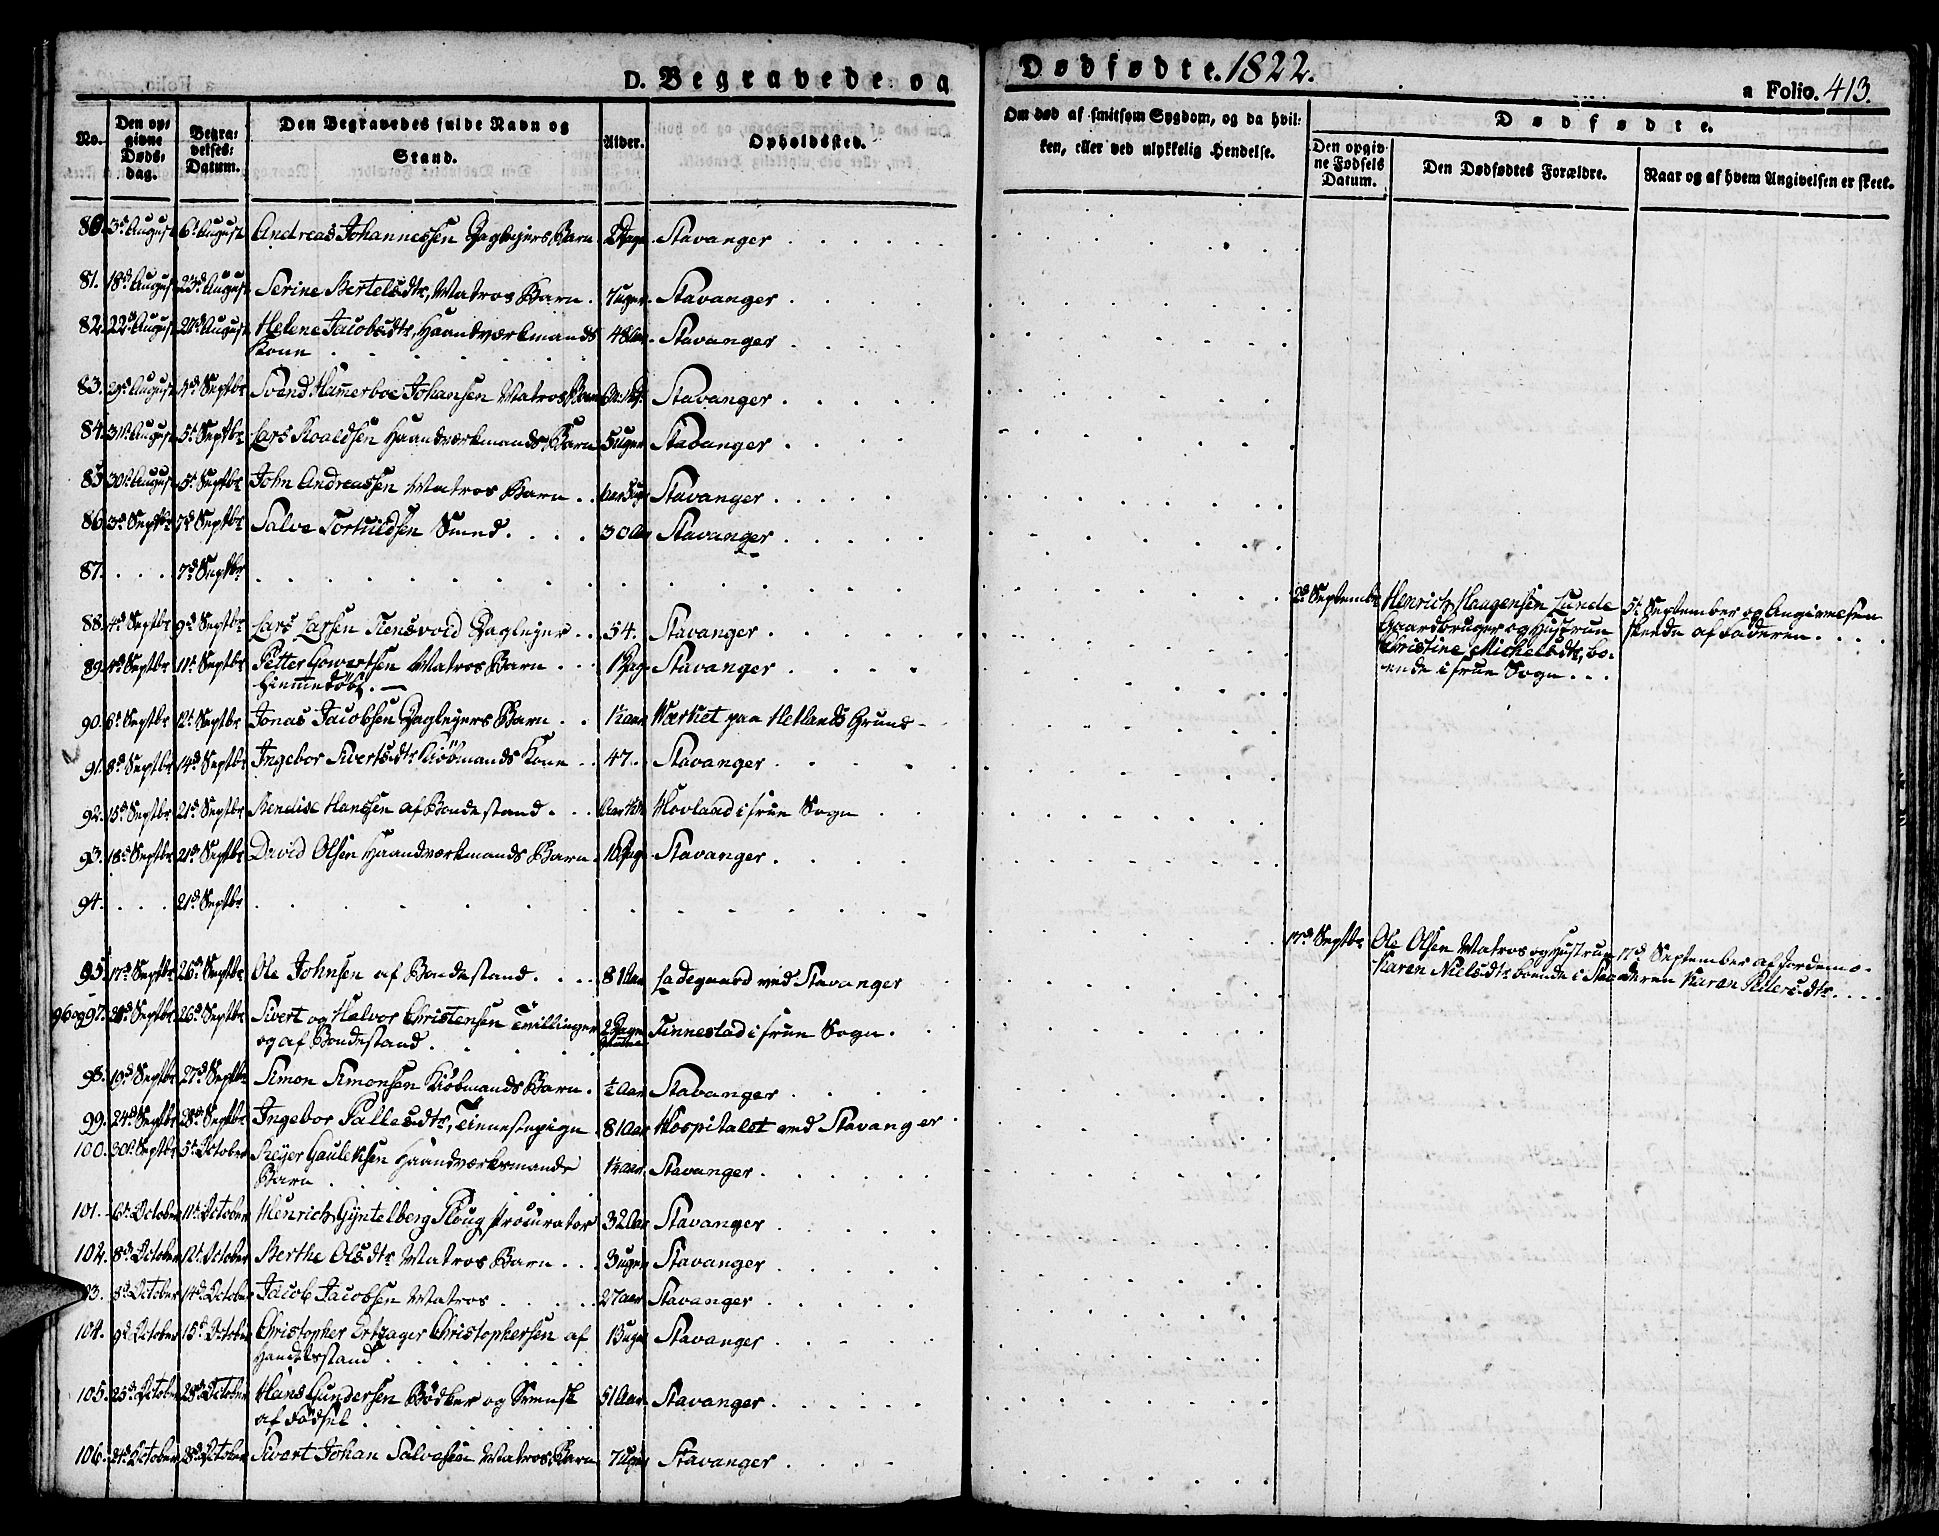 D. Begravede og
Dødfødte. 1822.
a Folio. 413.
No.
Den op-
givne
Døds-
dag.
Begra-
velses-
Datum.
Den Begravedes fulde Navn og
Stand.
Alder.
Opholdssted.
Om død af smitsom Sygdom, og da hvil-
ken, eller ved ulykkelig Hendelse.
Dødfødte.
Den opgiv-
ne Fødsels
Datum.
Den Dødfødtes Forældre.
Naar og af hvem Angivelsen er skeet.
80. 3d August 6t August Andreas Johannessen Daglejers Barn Stavanger
81. 18d August 23d August Serine Bertelsdtr, Matros Barn 7 uger Stavanger
82. 22d August 27d August Helene Jacobsdtr Haandværkmands 48 Aar Stavanger
Kone
83. 29d August 4d Septbr Svend Hamerboe Johansen Matros Barn Stavanger
84. 31t August 5t Septbr Lars Roaldsen Haandværkmands Barn 5 uger Stavanger
85 30t August 5t Septbr John Andreassen Matros Barn Stavanger
86 3d Septbr 7d Septbr Salve Tortuildsen Smed 30 Aar Stavanger
87. 7d Septbr
2d Septembr Henrich Haugensen Lunde 5t September og Angivelsen
Gaardbruger og Hustrue skeede af Faderen
Christine Michelsdtr, bo-
ende i frue Sogn
88. 4d Septbr 9d Septbr Lars Larsen Daglejer 54. Stavanger
89. 4d Septbr 11t Septbr Petter Govertsen Matros Barn 1 Dag Stavanger
Hiemmedøbt.
90. 6t Septbr 12t Septbr Jonas Jacobsen Daglejers Barn 1½ aar Værket paa Hetlands Grund
91. 8d Septbr 14d Septbr Ingebor Sivertsdtr Kiöbmands Kone 47. Stavanger
92. 15d Septbr 21d Septbr Bendise Hanssen af Bondestand Hovland i frue Sogn
93. 18d Septbr 21d Septbr David Olsen Haandværkmands Barn Stavanger
94. 21d Septbr
17d Septbr Ole Olsen Matros og Hustrue 17d September af Jordemo-
Karen Nielsdtr boende i deren Karen Petersdtr
95. 17d Septbr 26t Septbr Ole Johnsen af Bondestand 81 Aar Ladegaard ved Stavanger
96 og 97. Septbr 26t Septbr Sivert og Halvor Christensen Tvillinger 2 Dage Finnestad i frue Sogn
og af Bondestand
98. 19d Septbr 27d Septbr Simon Simonsen Kiöbmands Barn ½ Aar Stavanger
99. 24d Septbr 28d Septbr Ingebor Pallesdtr, Tienestepige 81 Aar Hospitalet ved Stavanger
100. 30t Septbr 5t October Reyer Gauleksen Haandværksmands Stavanger
Barn
101. 6t October 11t October Henrich Gyntelberg Ploug Procurator 32 Aar Stavanger
102. 8d October 12t October Berthe Olsdtr Matros Barn 3 uger Stavanger
103. 8d October 14d October Jacob Jacobsen Matros 27 aar Stavanger
104. 9d October 15d October Christopher Ertzager Christophersen af 13 uger Stavanger
Handelsstand
105. 25d October 28d October Hans Gundersen Bödker og Svensk 51 Aar Stavanger
af Födsel
106. 24d October 28d October Sivert Johan Salvesen Matros Barn 7 Uger Stavanger